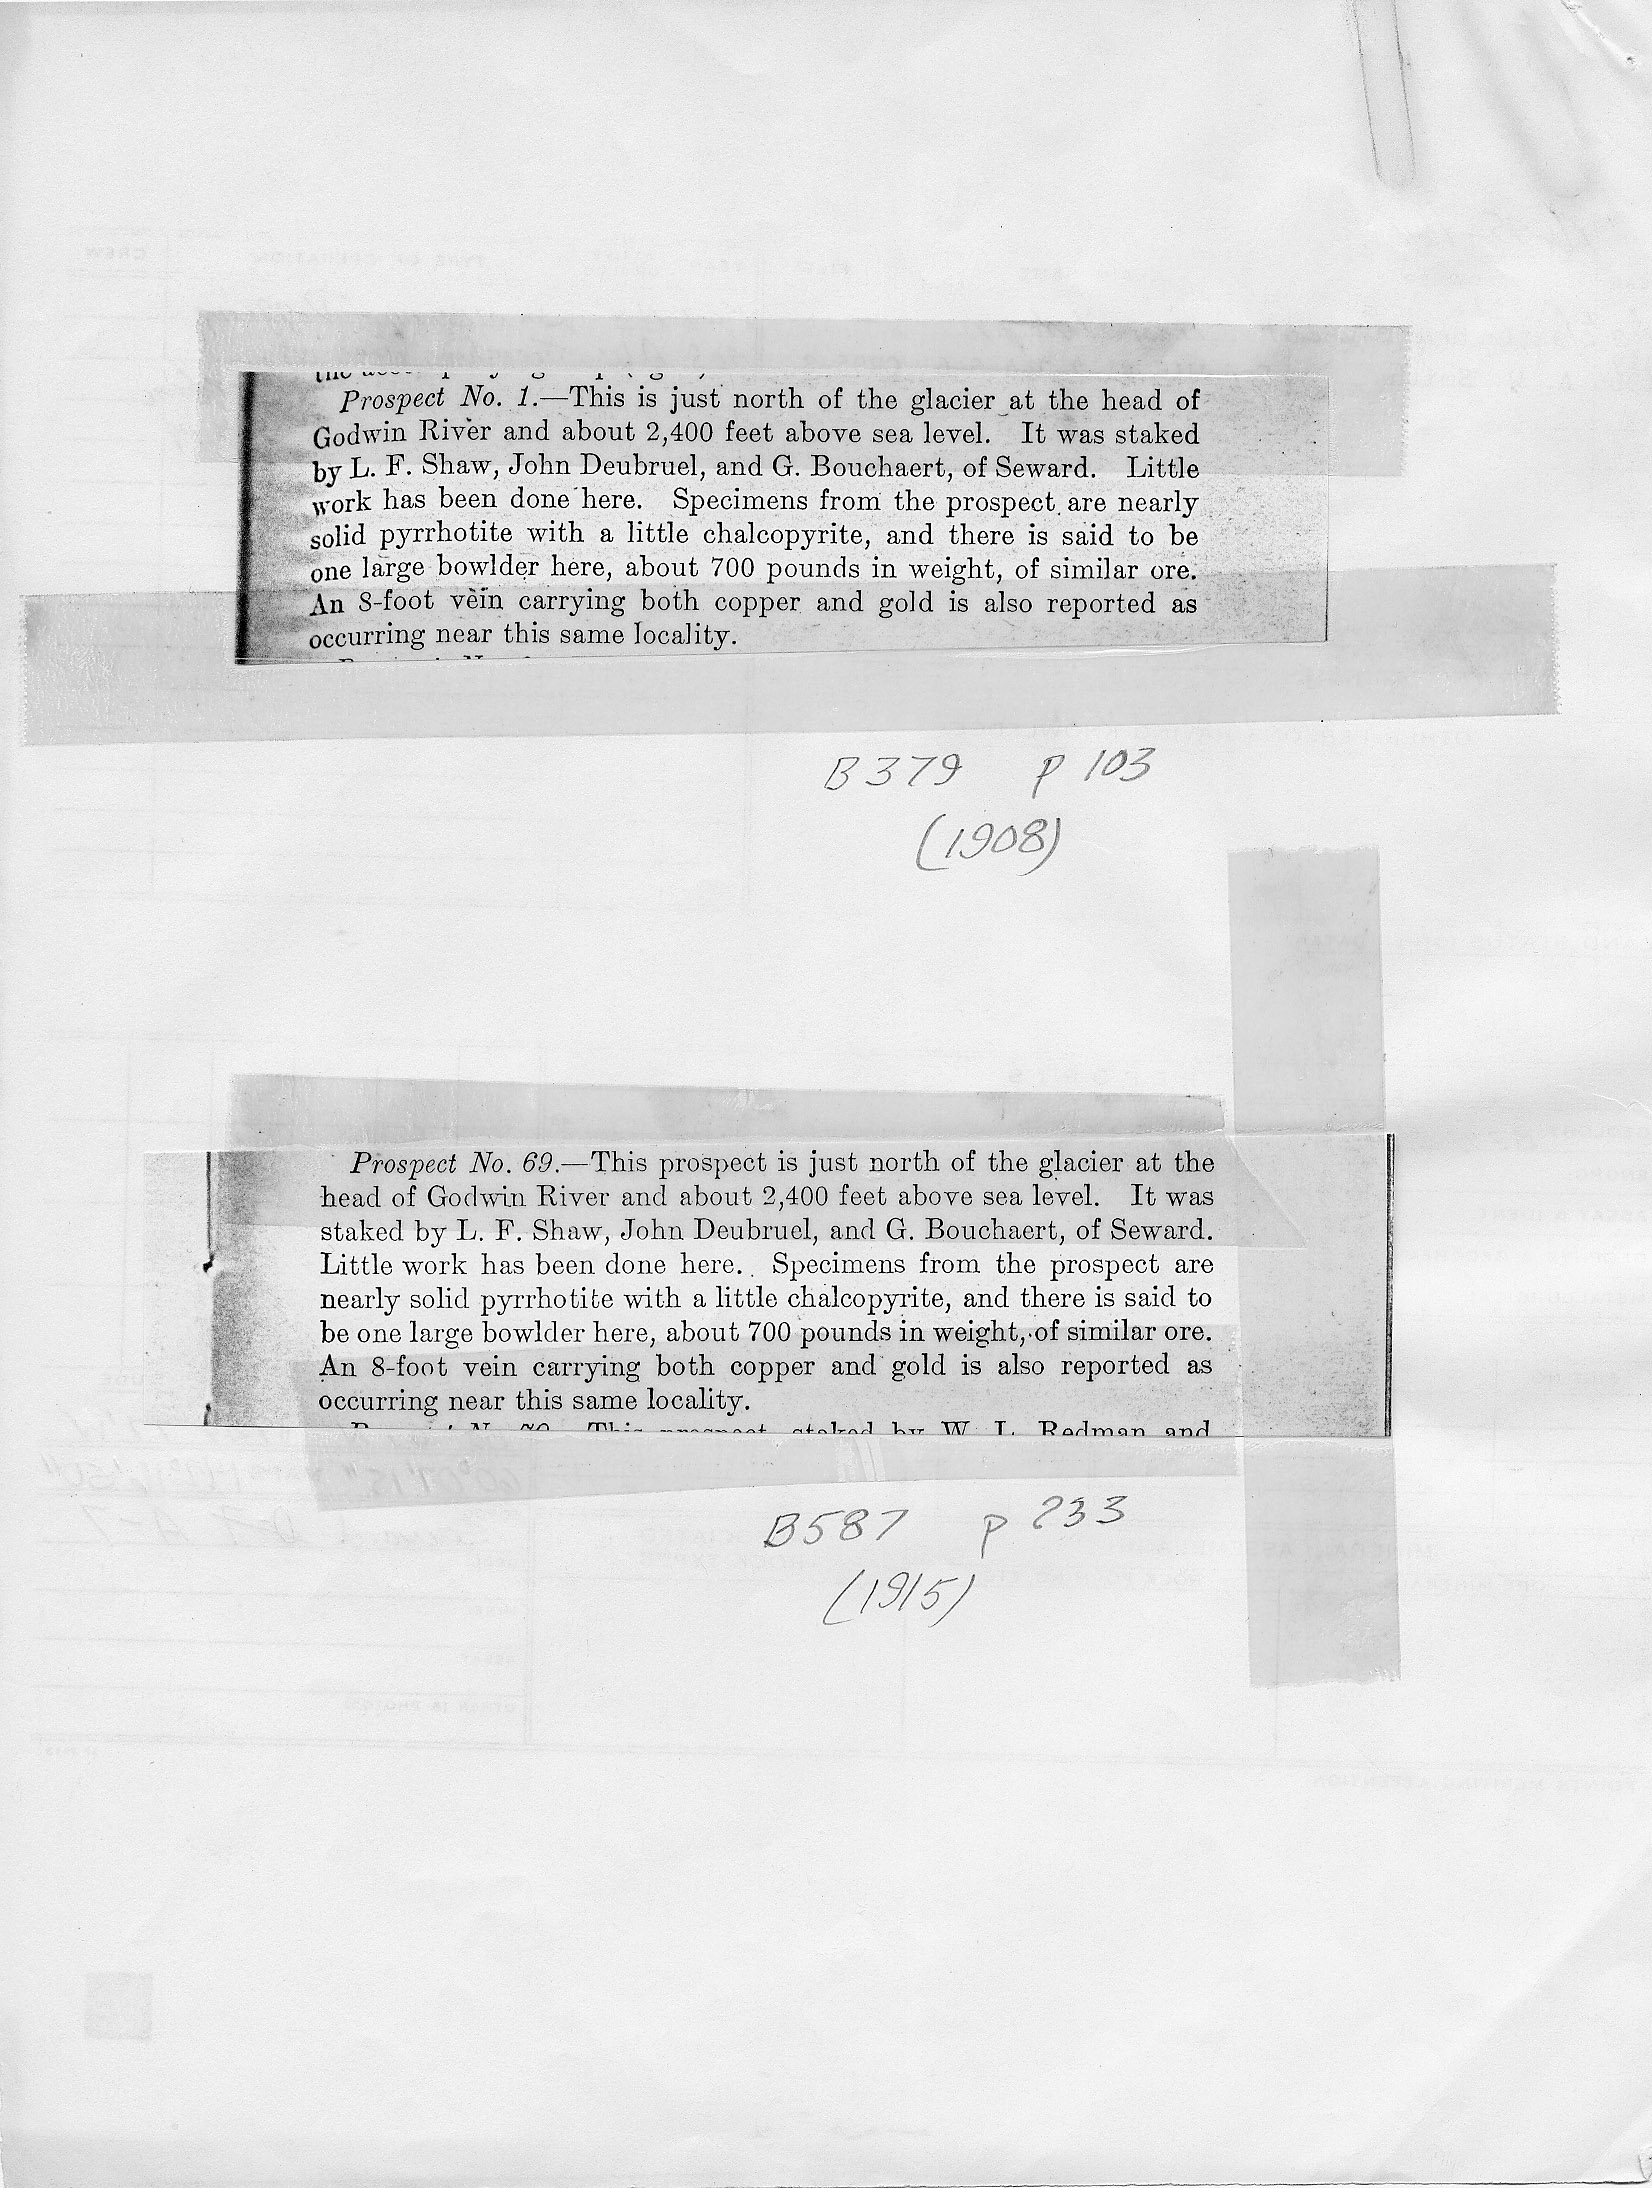 Prospect No. 1.—This is just north of the glacier at the head of
Godwin River and about 2,400 feet above sea level. It was staked
by L. F. Shaw, John Deubruel, and G. Bouchaert, of Seward. Little
work has been done here. Specimens from the prospect are nearly
solid pyrrhotite with a little chalcopyrite, and there is said to be
one large bowlder here, about 700 pounds in weight, of similar ore.
An 8-foot vein carrying both copper and gold is also reported as
occurring near this same locality.
B379 p 103
(1908)
Prospect No. 69.—This prospect is just north of the glacier at the
head of Godwin River and about 2,400 feet above sea level. It was
staked by L. F. Shaw, John Deubruel, and G. Bouchaert, of Seward.
Little work has been done here. Specimens from the prospect are
nearly solid pyrrhotite with a little chalcopyrite, and there is said to
be one large bowlder here, about 700 pounds in weight, of similar ore.
An 8-foot vein carrying both copper and gold is also reported as
occurring near this same locality.
This prospect staked by W. L. Redman and
B587 p 233
(1915)